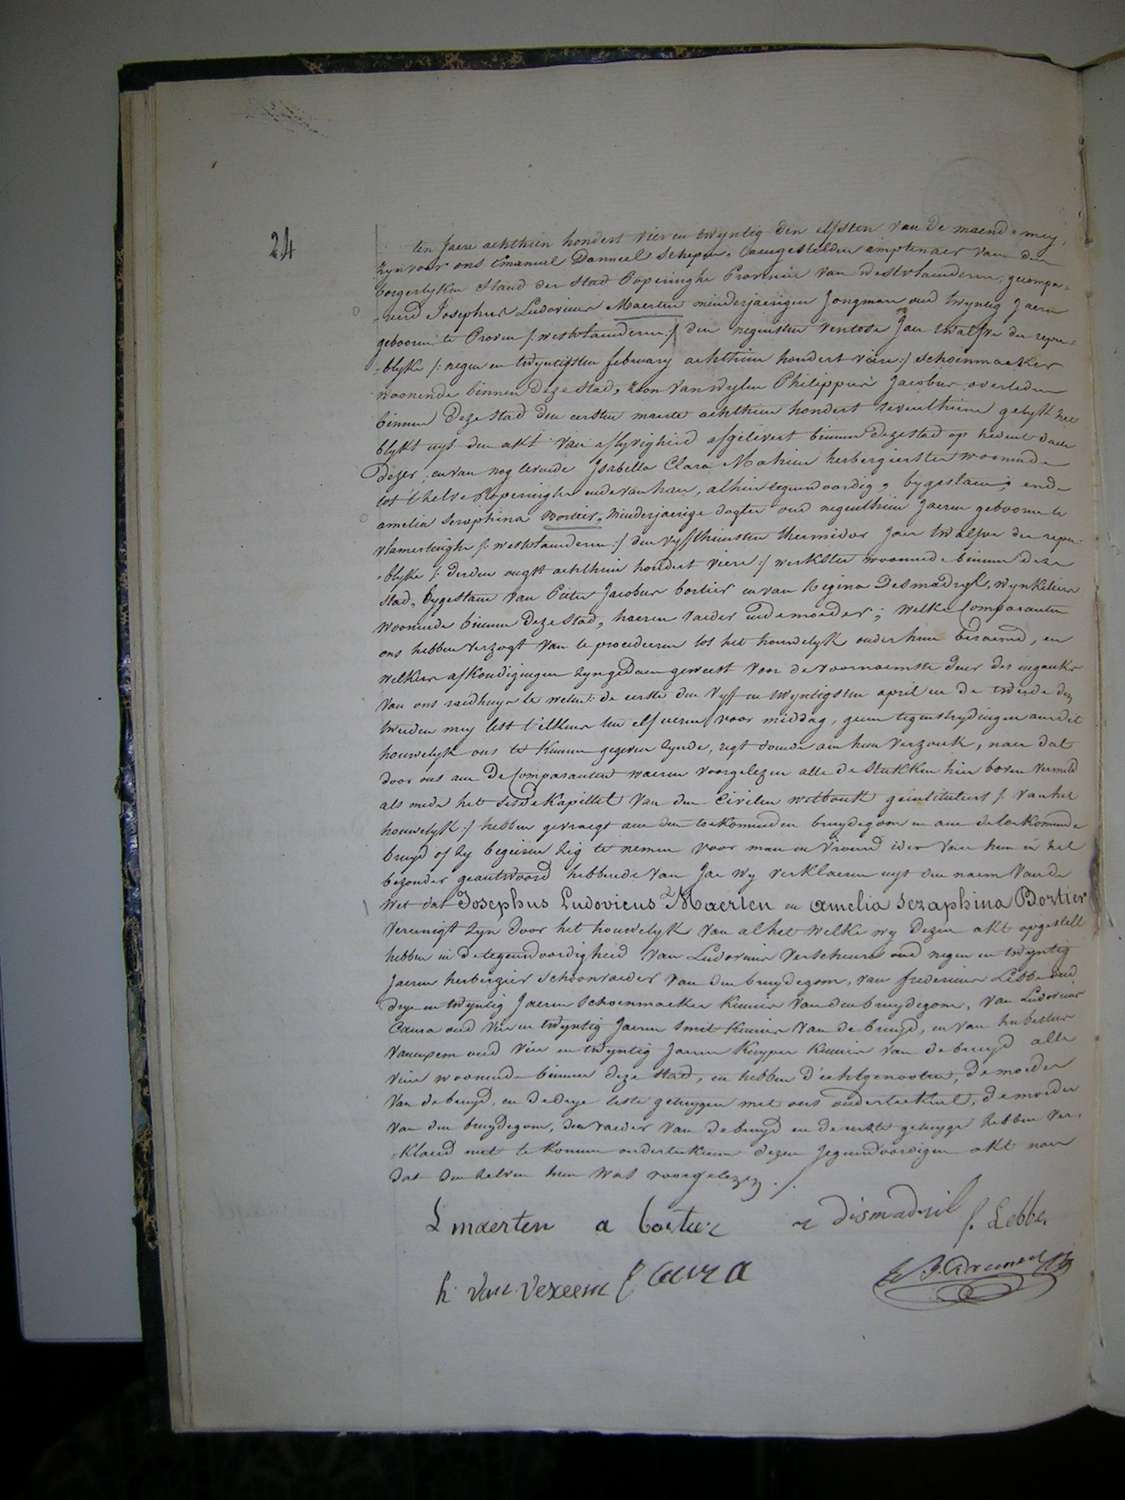 24
ten Jaere achthien hondert vier en twyntig den elfsten van de maend mey,
zyn voor ons Emanuel Danneel schepen, aengestelden amptenaer van den
borgerlyken stand der stad Poperinghe Provincie van westvlaenderen, gecompa-
-reerd Josephus Ludovicus Maerten minderjaerigen Jongman oud twyntig Jaeren
gebooren te Proven /: westvlaenderen :/ den negensten ventose Jaer twalfve der repu-
-blyke /: negen en twyntigsten february achthien hondert viere :/ schoenmaeker
woonende binnen deze stad, zoon van wylen Philippus Jacobus overleden
binnen deze stad den eersten maerte achthien hondert seventhiene gelyk het
blykt uyt den akt van aflyvigheid afgelevert binnen deze stad op heden daer
dezer, en van nog levende Isabella Clara Mahieu herbergierster woonende
tot t'helve Poperinghe ende van haer, alhier tegenwoordig, bygestaen; ende
amelia seraphina Bortier, minderjaerige dogter oud negenthien Jaeren gebooren te
vlamertinghe /: westvlaenderen :/ den vyfthiensten thermidor Jaer twalfve der repu-
-blyke /: derden ougst achthien hondert viere :/ werkster woonende binnen deze
stad, bygestaen van Pieter Jacobus bortier en van Regina Desmadryl, wynkeliers
woonende binnen deze stad, haeren vaeder ende moeder; welke Comparanten
ons hebben verzogt van te procederen tot het houwelyk onder hun beraemd, en
welkers afkondigingen zyn gedaen geweest voor de voornaemste deur der ingank
van ons raedhuys te weten: de eerste den vyf en twyntigsten april en de tweede den
tweeden mey lest t'elkens ten elf ueren voor middag, geene tegenstrydingen aen dit
houwelyk ons te kennen gegeven zynde, regt doende aen hun verzoek, naer dat
door ons aen de Comparanten waeren voorgelezen alle de stukken hier boven vermeld
als mede het sesde kapittel van den Civilen wetboek geintituleert /: van het
houwelyk :/ hebben gevraegt aen den toekomenden bruydegom en aen de toekomende
bruyd of zy begeiren zig te nemen voor man en vrouw ider van hun in het
bezonder geantwoord hebbende van Jae wy verklaeren uyt den naem van de
wet dat Josephus Ludovicus Maerten en amelia seraphina Bortier
vereenigt zyn door het houwelyk van al het welke wy dezen akt opgestelt
hebben in de tegenwoordigheid van Ludovicus Verscheure oud negen en twyntig
Jaeren herbergier schoonvaeder van den bruydegom, van fredericus Lebbe oud
drye en twyntig Jaeren schoenmaeker kennis van den bruydegom, van Ludovicus
Caura oud vier en twyntig Jaeren smit kennis van de bruyd, en van hubertus
Vanuxem oud vier en twyntig Jaeren kuyper kennis van de bruyd alle
viere woonende binnen deze stad, en hebben d'echtgenooten, de moeder
van de bruyd, en de drye leste getuygen met ons onderteekent, de moeder
van den bruydegom, den vaeder van de bruyd en de eerste getuyge hebben ver-
-klaerd niet te konnen onderteekenen dezen Jegenwoordigen akt naer
dat den helven hun was voorgelezen ./.
L maerten a bortier r dismadril f. Lebbe
h. van vexeem L caura